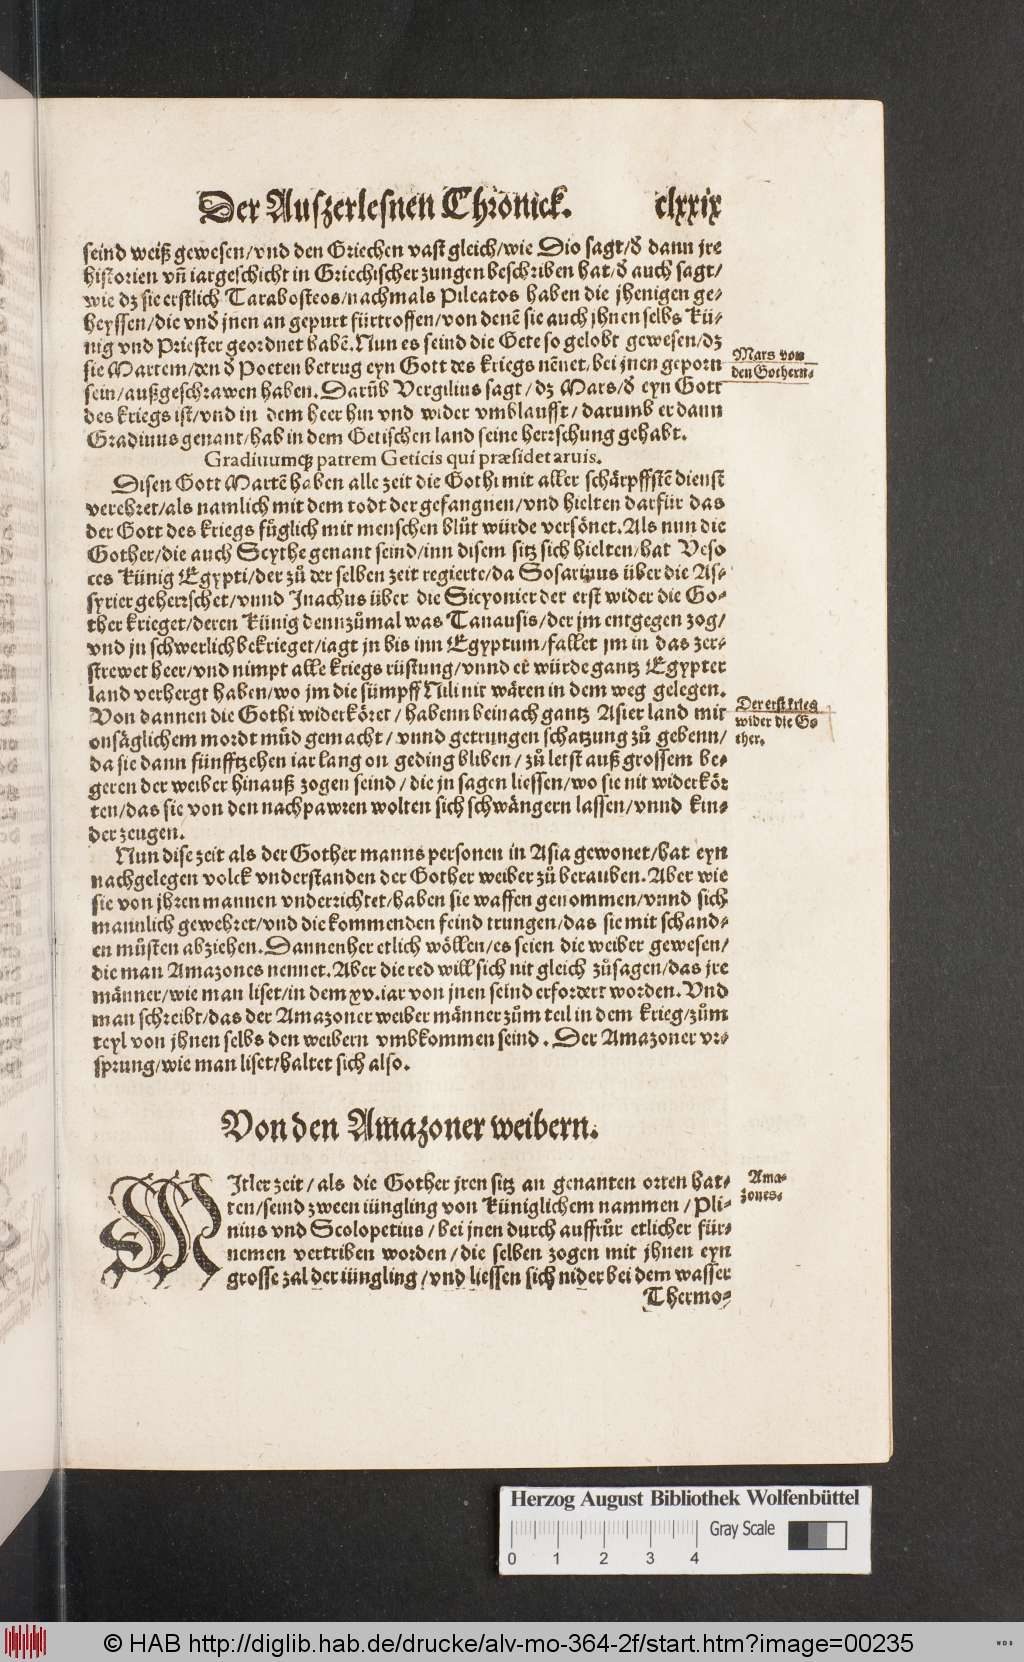 Der Auszerlesnen Chronick. clxxix
seind weiß gewesen/vnd den Griechen vast gleich/wie Dio sagt/d̕ dann jre
historien vñ iargeschicht in Griechischer zungen beschriben hat/d̕ auch sagt/
wie dz sie erstlich Tarabosteos/nachmals Pileatos haben die jhenigen ge-
heyssen/die vnd̕ jnen an gepurt fürtroffen/von denẽ sie auch jhnen selbs Kü-
nig vnd Priester geordnet habẽ. Nun es seind die Gete so gelobt gewesen/dz
sie Martem/den d̕ Poeten betrug eyn Gott des kriegs nẽnet/bei jnen geporn
sein/außgeschrawen haben. Darũb Vergilius sagt/dz Mars/d̕ eyn Gott
des kriegs ist/vnd in dem heer hin vnd wider vmblaufft/darumb er dann
Gradiuus genant/hab in dem Getischen land seine herrschung gehabt.
Mars von
den Gothern.
Gradiuumq; patrem Geticis qui præsidet aruis.
Disen Gott Martẽ haben alle zeit die Gothi mit aller schärpffstẽ dienst
verehret/als namlich mit dem todt der gefangnen/vnd hielten darfür das
der Gott des kriegs füglich mit menschen blůt würde versönet. Als nun die
Gother/die auch Scythe genant seind/inn disem sitz sich hielten/hat Veso
ces Künig Egypti/der zů der selben zeit regierte/da Sosarinus über die As-
syrier geherrschet/vnnd Inachus über die Sicyonier der erst wider die Go-
ther krieget/deren Künig dennzůmal was Tanausis/der jm entgegen zog/
vnd jn schwerlich bekrieget/iagt jn bis inn Egyptum/fallet jm in das zer-
strewet heer/vnd nimpt alle kriegs rüstung/vnnd er würde gantz Egypter
land verhergt haben/wo jm die sümpff Nili nit wären in dem weg gelegen.
Von dannen die Gothi widerköret/habenn beinach gantz Asier land mit
onsäglichem mordt můd gemacht/vnnd getrungen schatzung zů gebenn/
da sie dann fünfftzehen iar lang on geding bliben/zů letst auß grossem be-
geren der weiber hinauß zogen seind/die jn sagen liessen/wo sie nit widerkör
ten/das sie von den nachpawren wolten sich schwängern lassen/vnnd kin-
der zeugen.
Der erst krieg
wider die Go
ther.
Nun dise zeit als der Gother manns personen in Asia gewonet/hat eyn
nachgelegen volck vnderstanden der Gother weiber zů berauben. Aber wie
sie von jhren mannen vnderrichtet/haben sie waffen genommen/vnnd sich
mannlich gewehret/vnd die kommenden feind trungen/das sie mit schand-
en můsten abziehen. Dannenher etlich wöllen/es seien die weiber gewesen/
die man Amazones nennet. Aber die red will sich nit gleich zůsagen/das jre
männer/wie man liset/in dem xv. iar von jnen seind erfordert worden. Vnd
man schreibt/das der Amazoner weiber männer zům teil in dem krieg/zům
teyl von jhnen selbs den weibern vmbkommen seind. Der Amazoner vr-
sprung/wie man liset/haltet sich also.
Von den Amazoner weibern.
MItler zeit/als die Gother jren sitz an genanten orten hat-
ten/seind zween iüngling von Küniglichem nammen/Pli-
nius vnd Scolopetius/bei jnen durch auffrůr etlicher für-
nemen vertriben worden/die selben zogen mit jhnen eyn
grosse zal der iüngling/vnd liessen sich nider bei dem wasser
Thermo-
Ama-
zones.
Herzog August Bibliothek Wolfenbüttel
Gray Scale
0 1 2 3 4
© HAB http://diglib.hab.de/drucke/alv-mo-364-2f/start.htm?image=00235